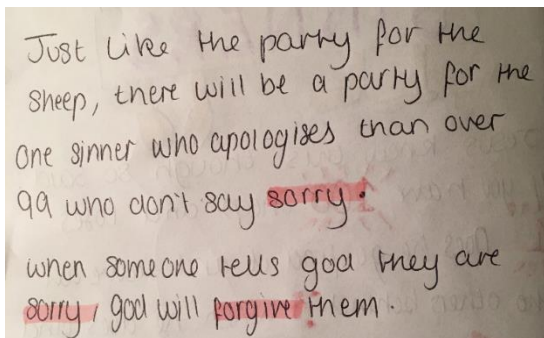 Just like the party for the
sheep, there will be a party for the
one sinner who apologises than over
99 who don't say sorry.
when someone tells god they are
sorry, god will forgive them.